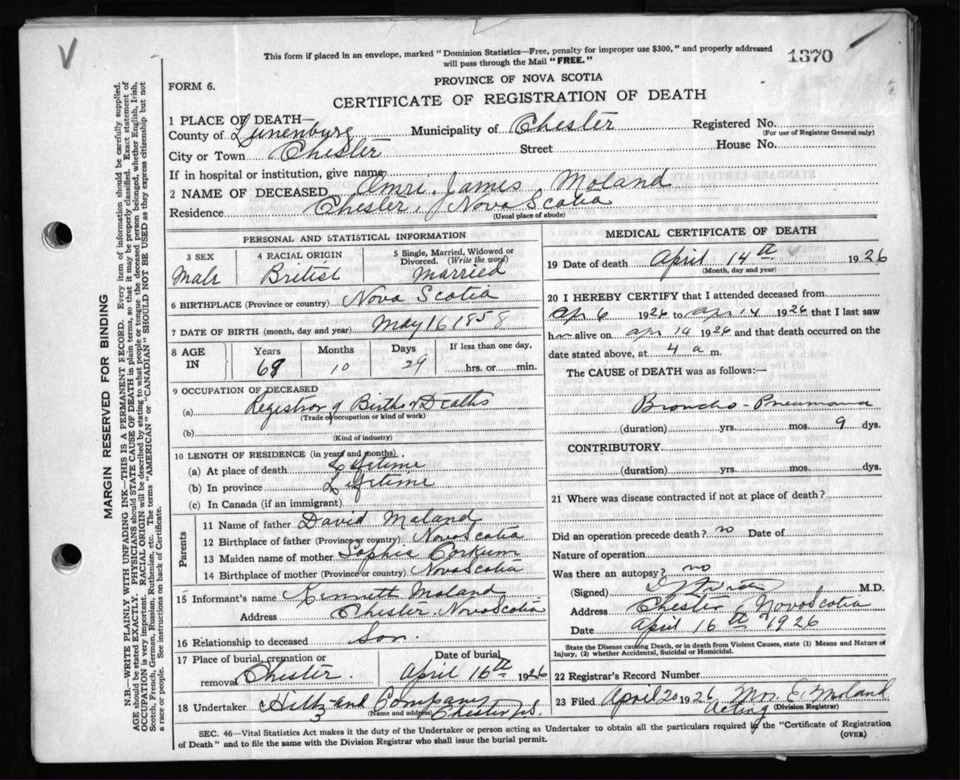 V
This form if placed in an envelope, marked "Dominion Statistics—Free, penalty for improper use $300," and properly addressed
will pass through the Mail "FREE."
1370
FORM 6.
PROVINCE OF NOVA SCOTIA
CERTIFICATE OF REGISTRATION OF DEATH
1 PLACE OF DEATH—
County of Lunenburg Municipality of Chester Registered No.
(For use of Registrar General only)
City or Town Chester Street House No.
If in hospital or institution, give name
2 NAME OF DECEASED Amri James Moland
Residence Chester, Nova Scotia
(Usual place of abode)
PERSONAL AND STATISTICAL INFORMATION
3 SEX 4 RACIAL ORIGIN 5 Single, Married, Widowed or
Divorced. (Write the word)
Male British Married
6 BIRTHPLACE (Province or country) Nova Scotia
7 DATE OF BIRTH (month, day and year) May 16 1858
8 AGE IN Years Months Days If less than one day,
10 29 hrs. or min.
9 OCCUPATION OF DECEASED
(a) Registrar of Births & Deaths
(Trade occupation or kind of work)
(b)
(Kind of industry)
10 LENGTH OF RESIDENCE (in years and months)
(a) At place of death Lifetime
(b) In province Lifetime
(c) In Canada (if an immigrant)
Parents
11 Name of father David Moland
12 Birthplace of father (Province or country) Nova Scotia
13 Maiden name of mother Sophia Corkum
14 Birthplace of mother (Province or country) Nova Scotia
15 Informant's name Kenneth Moland
Address Chester, Nova Scotia
16 Relationship to deceased Son
17 Place of burial, cremation or Date of burial
removal Chester. April 16th 1926
18 Undertaker Hiltz and Company
(Name and address) Chester N.S.
MEDICAL CERTIFICATE OF DEATH
19 Date of death April 14th 1926
(Month, day and year)
20 I HEREBY CERTIFY that I attended deceased from
Ap 6 1926 to Apr 14 1926 that I last saw
him alive on Apr 14 1926 and that death occurred on the
date stated above, at 4 a m.
The CAUSE of DEATH was as follows:—
Broncho-Pneumonia
(duration) yrs. mos. 9 dys.
CONTRIBUTORY
(duration) yrs. mos. dys.
21 Where was disease contracted if not at place of death?
Did an operation precede death? no Date of
Nature of operation
Was there an autopsy? no
(Signed) M.D.
Address Chester Nova Scotia
Date April 16th 1926
State the Disease causing Death, or in death from Violent Causes, state (1) Means and Nature of
Injury, (2) whether Accidental, Suicidal or Homicidal.
22 Registrar's Record Number
23 Filed April 20 1926 Mrs. E. Moland
Acting (Division Registrar)
SEC. 46—Vital Statistics Act makes it the duty of the Undertaker or person acting as Undertaker to obtain all the particulars required by the "Certificate of Registration
of Death" and to file the same with the Division Registrar who shall issue the burial permit.
(OVER)
MARGIN RESERVED FOR BINDING
N.B.—WRITE PLAINLY WITH UNFADING INK—THIS IS A PERMANENT RECORD. Every item of information should be carefully supplied.
AGE should be stated EXACTLY. PHYSICIANS should STATE CAUSE OF DEATH in plain terms, so that it may be properly classified. Exact statement of
OCCUPATION is very important. RACIAL ORIGIN will be described by stating to what people or tongue the deceased person belonged, whether English, Irish,
Scotch, French, German, Russian, Ruthenian, etc. The terms "AMERICAN" or "CANADIAN" SHOULD NOT BE USED as they express citizenship but not
a race or people. See instructions on back of Certificate.